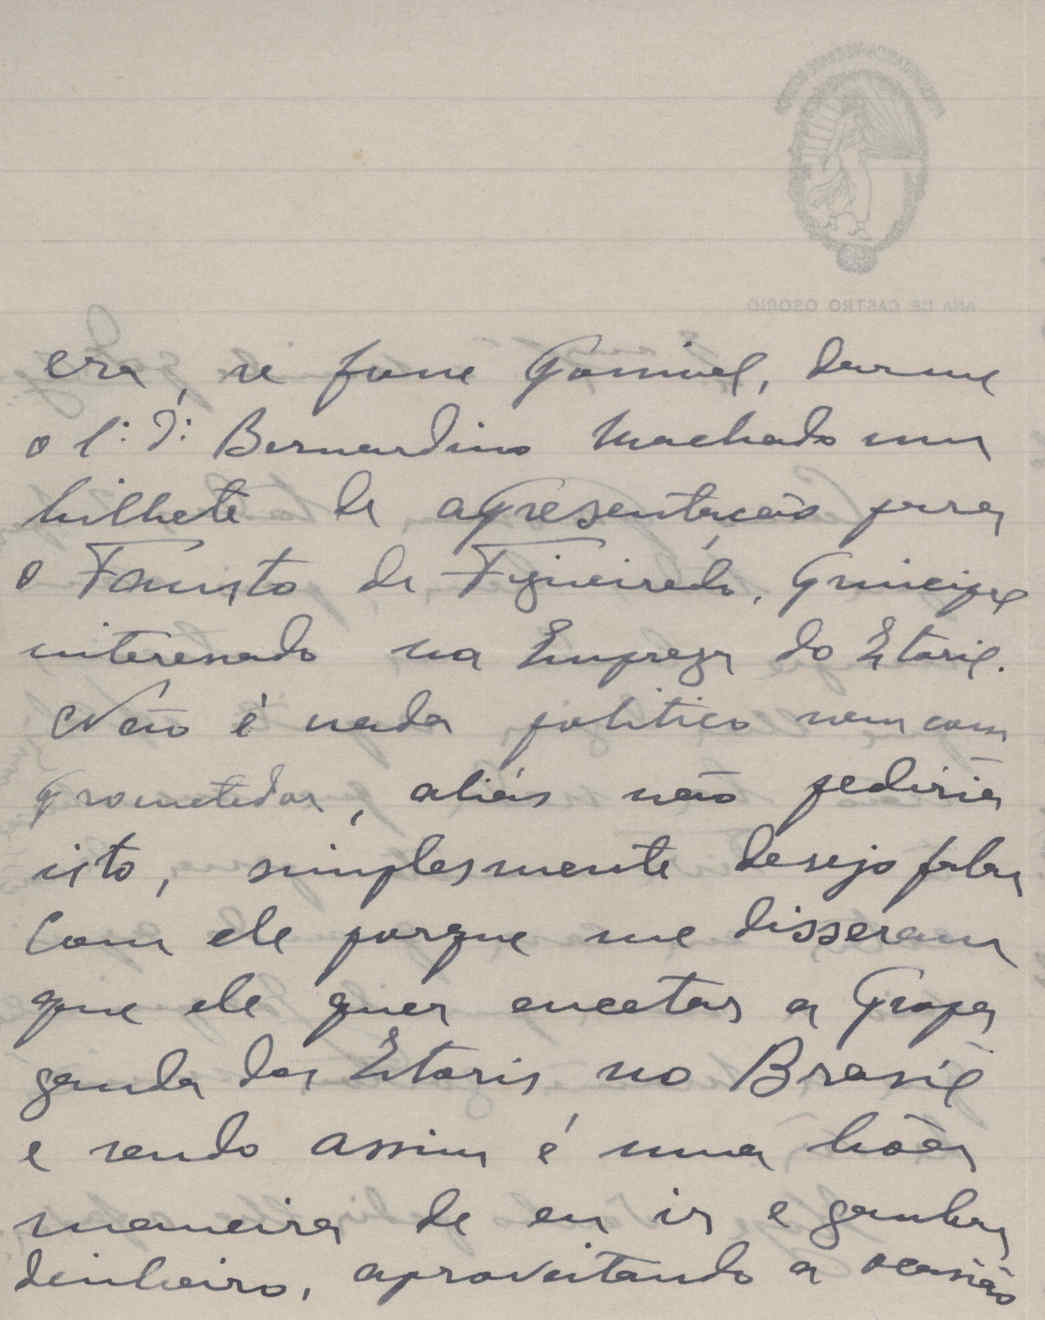 ANA DE CASTRO OSORIO
era, se fosse possivel, dar-me
o S.r D.r Bernardino Machado um
bilhete de apresentação para
o Fausto de Figueiredo, principal
interessado na Empreza do Estoril.
Não é nada politico nem com
prometedor, aliás não pediria
isto, simplesmente desejo falar
com ele porque me disseram
que ele quer encetar a propa
ganda do Estoril no Brasil
e sendo assim é uma bôa
maneira de eu ir e ganhar
dinheiro, aproveitando a ocasião